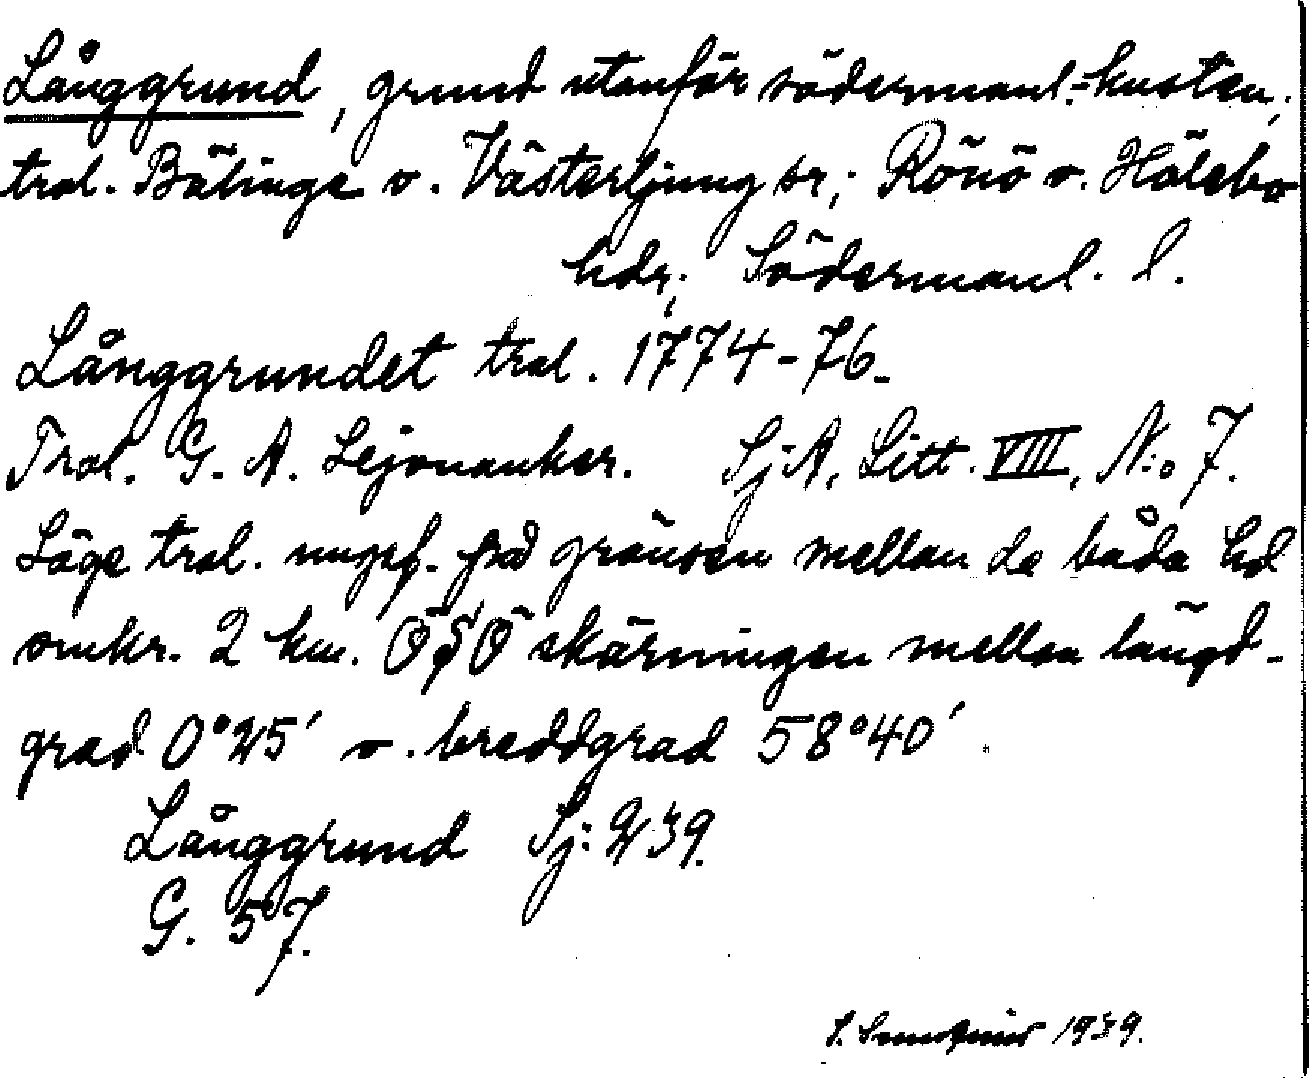 Långgrund, grund utanför södermanl.-kusten,
trol. Bälinge o. Västerljung sr; Rönö o. Hölebo
hdr; Södermanl. l.
Långgrundet trol. 1774-76.
Trol. G. A. Lejonanker. Sj:A, Litt. VIII, N:o 7.
Läge trol. ungef. på gränsen mellan de båda hd
omkr. 2 km. ÖSÖ skärningen mellan längd-
grad 0°25' o. breddgrad 58°40'.
Långgrund Sj: 239.
G. 57.
1939.